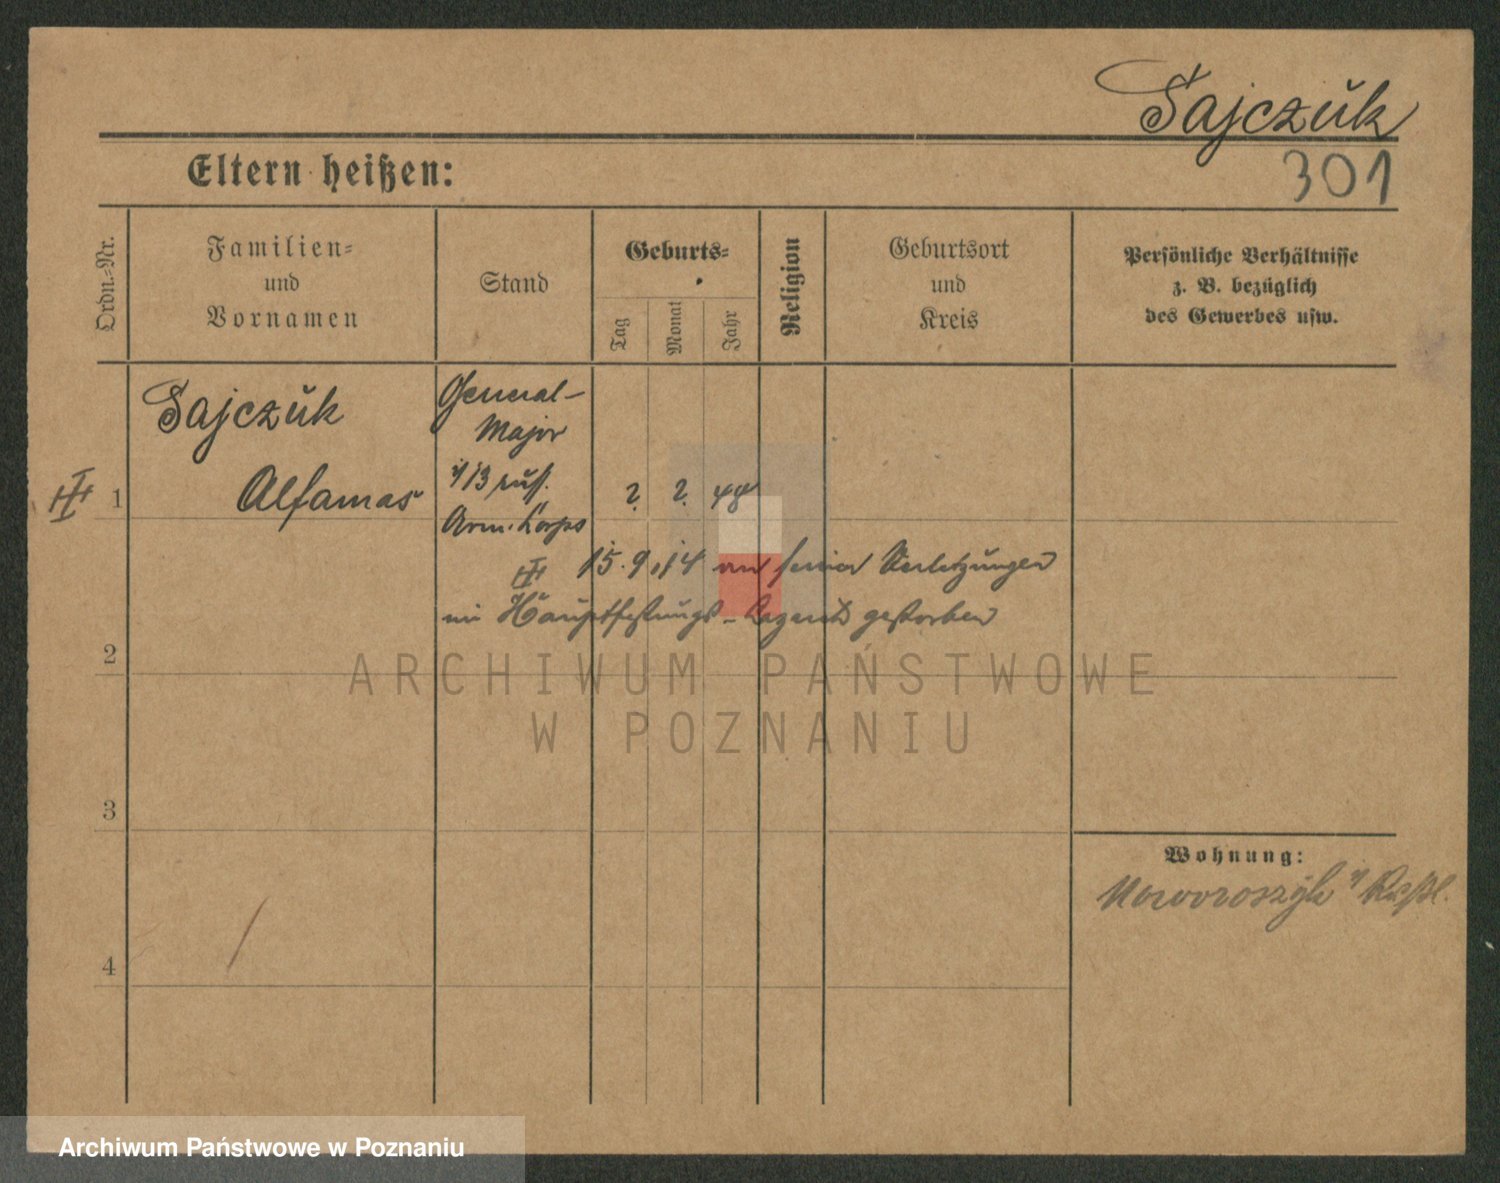 Sajczuk
301
Eltern heißen:
Ordn.-Nr.
Familien-
und
Vornamen
Stand
Geburts-
Tag
Monat
Jahr
Religion
Geburtsort
und
Kreis
Persönliche Verhältnisse
z. B. bezüglich
des Gewerbes usw.
1
Sajczuk
Alfamas
General-
Major
i/13 russ.
Arm. Korps
? ? 48
15.9.14 an seinen Verletzungen
im Hauptfestungs-Lazarett gestorben
2
3
4
Wohnung:
Noworoszyk i/
ARCHIWUM PAŃSTWOWE
W POZNANIU
Archiwum Państwowe w Poznaniu